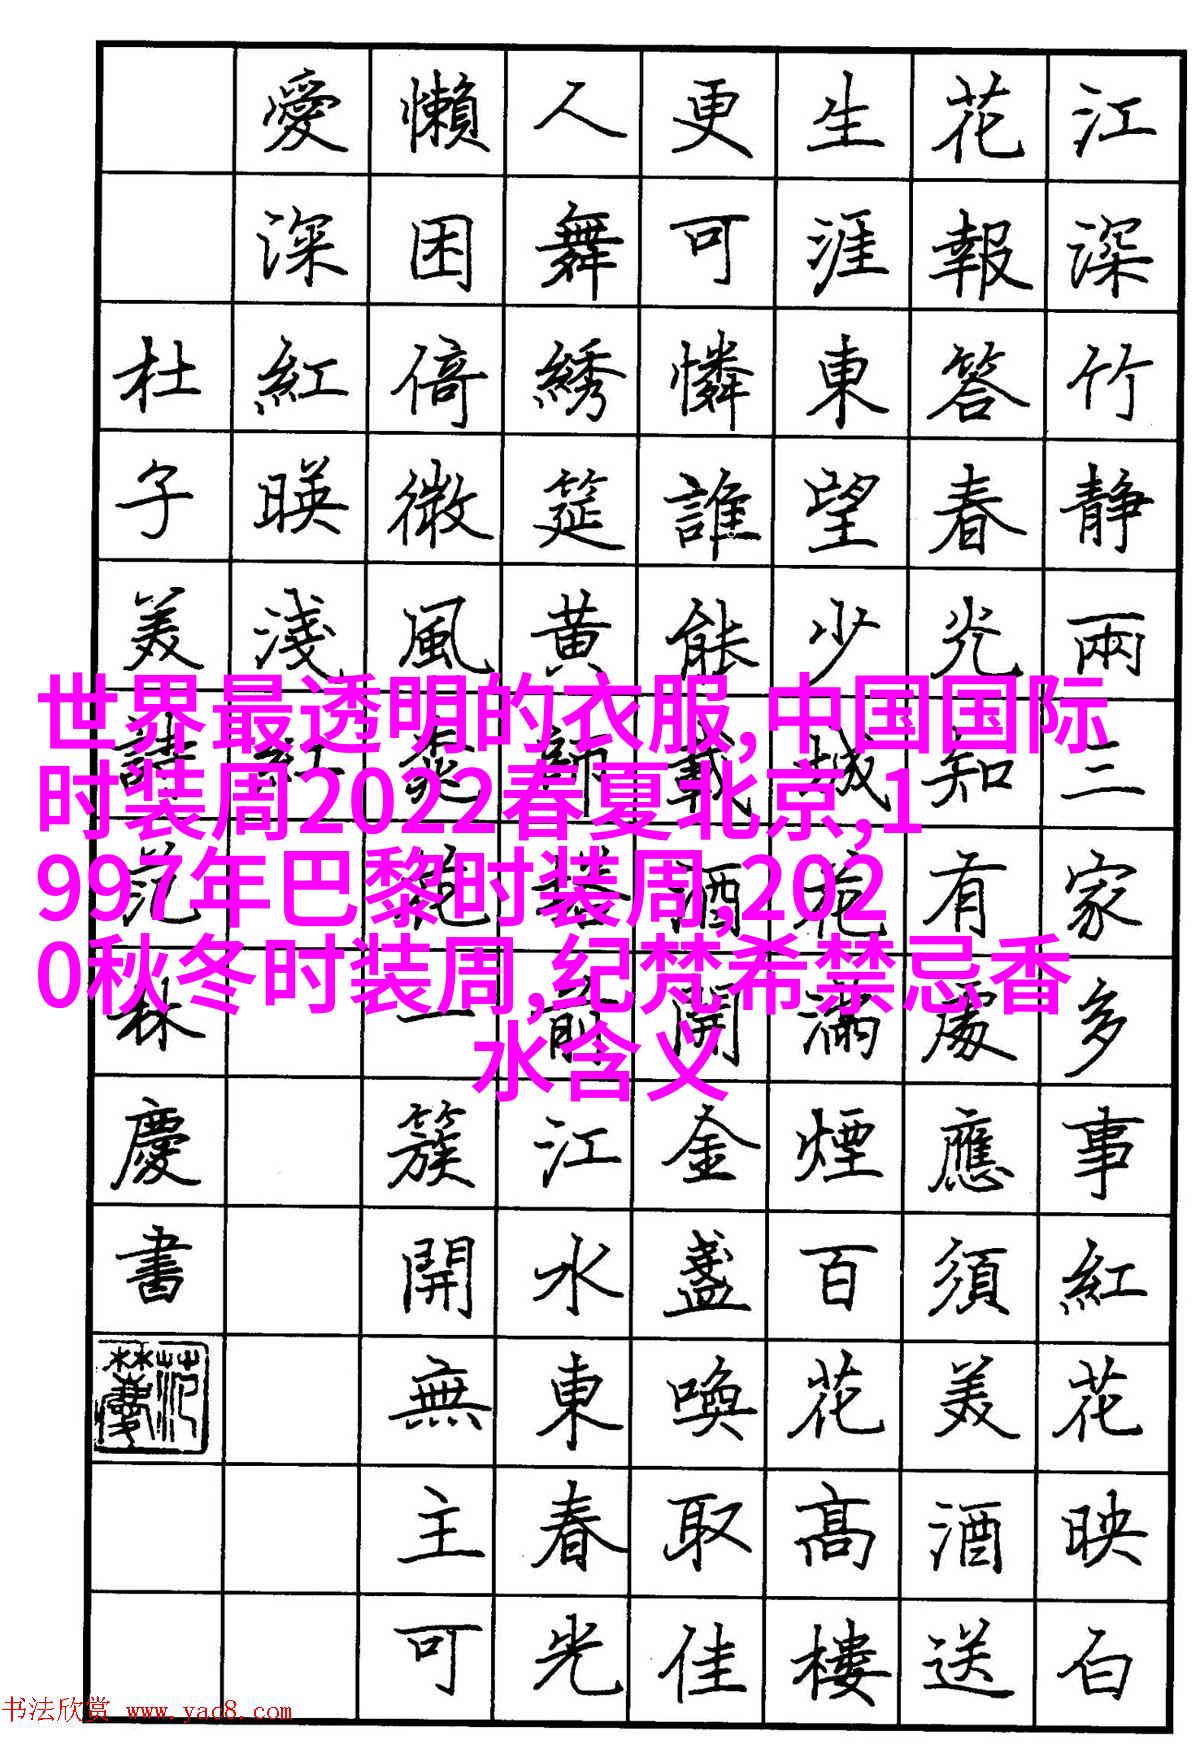 江深竹静兩三家多事紅花映白
花報答春光知有處應須美酒送
生涯東望少城花滿煙百花高樓
更可憐誰能載酒開金盞喚取佳
人舞綉筵黄師塔前江水東春光
懶困倚微風桃花一簇開無主可
愛深紅暎淺紅
杜子美詩范林慶書
范林慶
世界最透明的衣服,中国国际
时装周2022春夏北京,1
997年巴黎时装周,202
0秋冬时装周,纪梵希禁忌香
水含义
书法欣赏 www.yac8.com